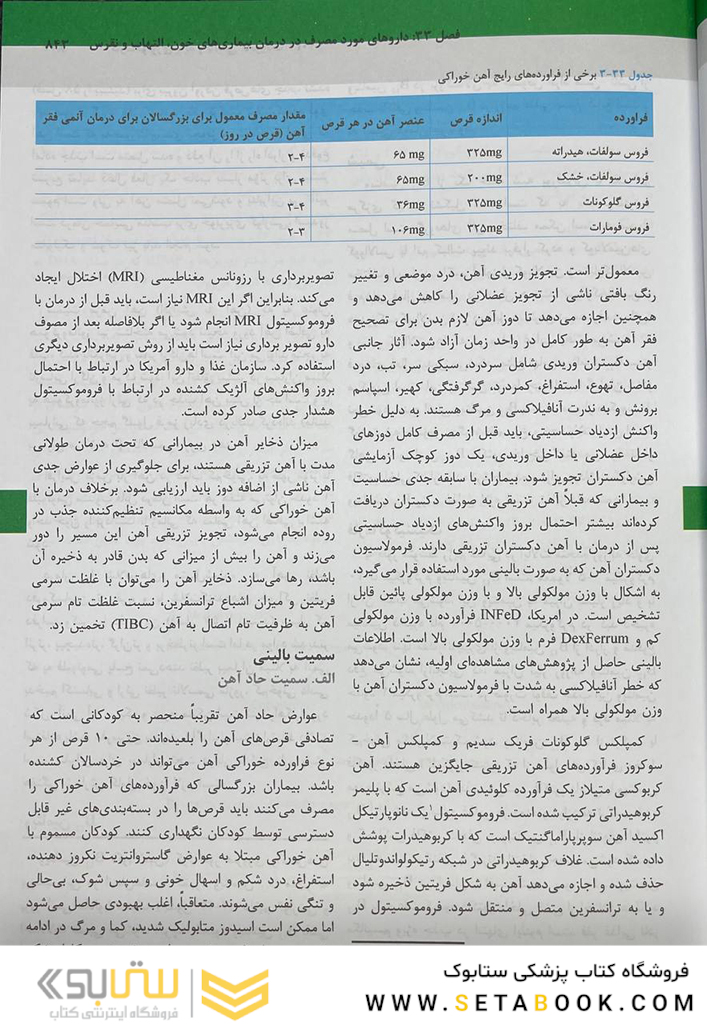 فصل ۳۳: داروهای مورد مصرف در درمان بیماری‌های خون، التهاب و نقرس ۸۴۳
جدول ۳۳-۳ برخی از فراورده‌های رایج آهن خوراکی
فراورده اندازه قرص عنصر آهن در هر قرص مقدار مصرف معمول برای بزرگسالان برای درمان آنمی فقر
آهن (قرص در روز)
فروس سولفات، هیدراته ۳۲۵mg ۶۵ mg ۲-۴
فروس سولفات، خشک ۲۰۰mg ۶۵mg ۲-۴
فروس گلوکونات ۳۲۵mg ۳۶mg ۳-۴
فروس فومارات ۳۲۵mg ۱۰۶mg ۲-۳
معمول‌تر است. تجویز وریدی آهن، درد موضعی و تغییر
رنگ بافتی ناشی از تجویز عضلانی را کاهش می‌دهد و
همچنین اجازه می‌دهد تا دوز آهن لازم بدن برای تصحیح
فقر آهن به طور کامل در واحد زمان آزاد شود. آثار جانبی
آهن دکستران وریدی شامل سردرد، سبکی سر، تب، درد
مفاصل، تهوع، استفراغ، کمردرد، گرگرفتگی، کهیر، اسپاسم
برونش و به ندرت آنافیلاکسی و مرگ هستند. به دلیل خطر
واکنش ازدیاد حساسیتی، باید قبل از مصرف کامل دوزهای
داخل عضلانی یا داخل وریدی، یک دوز کوچک آزمایشی
آهن دکستران تجویز شود. بیماران با سابقه جدی حساسیت
و بیمارانی که قبلاً آهن تزریقی به صورت دکستران دریافت
کرده‌اند بیشتر احتمال بروز واکنش‌های ازدیاد حساسیتی
پس از درمان با آهن دکستران تزریقی دارند. فرمولاسیون
دکستران آهن که به صورت بالینی مورد استفاده قرار می‌گیرد،
به اشکال با وزن مولکولی بالا و با وزن مولکولی پائین قابل
تشخیص است. در امریکا، INFeD فرآورده با وزن مولکولی
کم و DexFerrum فرم با وزن مولکولی بالا است. اطلاعات
بالینی حاصل از پژوهش‌های مشاهده‌ای اولیه، نشان می‌دهد
که خطر آنافیلاکسی به شدت با فرمولاسیون دکستران آهن با
وزن مولکولی بالا همراه است.
کمپلکس گلوکونات فریک سدیم و کمپلکس آهن –
سوکروز فرآورده‌های آهن تزریقی جایگزین هستند. آهن
کربوکسی متیلاز یک فرآورده کلوئیدی آهن است که با پلیمر
کربوهیدراتی ترکیب شده است. فروموکسیتول۱ یک نانوپارتیکل
اکسید آهن سوپرپاراماگنتیک است که با کربوهیدرات پوشش
داده شده است. غلاف کربوهیدراتی در شبکه رتیکولواندوتلیال
حذف شده و اجازه می‌دهد آهن به شکل فریتین ذخیره شود
و یا به ترانسفرین متصل و منتقل شود. فروموکسیتول در
تصویربرداری با رزونانس مغناطیسی (MRI) اختلال ایجاد
می‌کند. بنابراین اگر این MRI نیاز است، باید قبل از درمان با
فروموکسیتول MRI انجام شود یا اگر بلافاصله بعد از مصوف
دارو تصویر برداری نیاز است باید از روش تصویربرداری دیگری
استفاده کرد. سازمان غذا و دارو آمریکا در ارتباط با احتمال
بروز واکنش‌های آلژیک کشنده در ارتباط با فروموکسیتول
هشدار جدی صادر کرده است.
میزان ذخایر آهن در بیمارانی که تحت درمان طولانی
مدت با آهن تزریقی هستند، برای جلوگیری از عوارض جدی
آهن ناشی از اضافه دوز باید ارزیابی شود. برخلاف درمان با
آهن خوراکی که به واسطه مکانسیم تنظیم‌کننده جذب در
روده انجام می‌شود، تجویز تزریقی آهن این مسیر را دور
می‌زند و آهن را بیش از میزانی که بدن قادر به ذخیره آن
باشد، رها می‌سازد. ذخایر آهن را می‌توان با غلظت سرمی
فریتین و میزان اشباع ترانسفرین، نسبت غلظت تام سرمی
آهن به ظرفیت تام اتصال به آهن (TIBC) تخمین زد.
سمیت بالینی
الف. سمیت حاد آهن
عوارض حاد آهن تقریباً منحصر به کودکانی است که
تصادفی قرص‌های آهن را بلعیده‌اند. حتی ۱۰ قرص از هر
نوع فراورده خوراکی آهن می‌تواند در خردسالان کشنده
باشد. بیماران بزرگسالی که فرآورده‌های آهن خوراکی را
مصرف می‌کنند باید قرص‌ها را در بسته‌بندی‌های غیر قابل
دسترسی توسط کودکان نگهداری کنند. کودکان مسموم با
آهن خوراکی مبتلا به عوارض گاستروانتریت نکروز دهنده،
استفراغ، درد شکم و اسهال خونی و سپس شوک، بی‌حالی
و تنگی نفس می‌شوند. متعاقباً، اغلب بهبودی حاصل می‌شود
اما ممکن است اسیدوز متابولیک شدید، کما و مرگ در ادامه
فروشگاه کتاب پزشکی ستابوک
WWW.SETABOOK.COM
ستابوک
فروشگاه اینترنتی کتاب